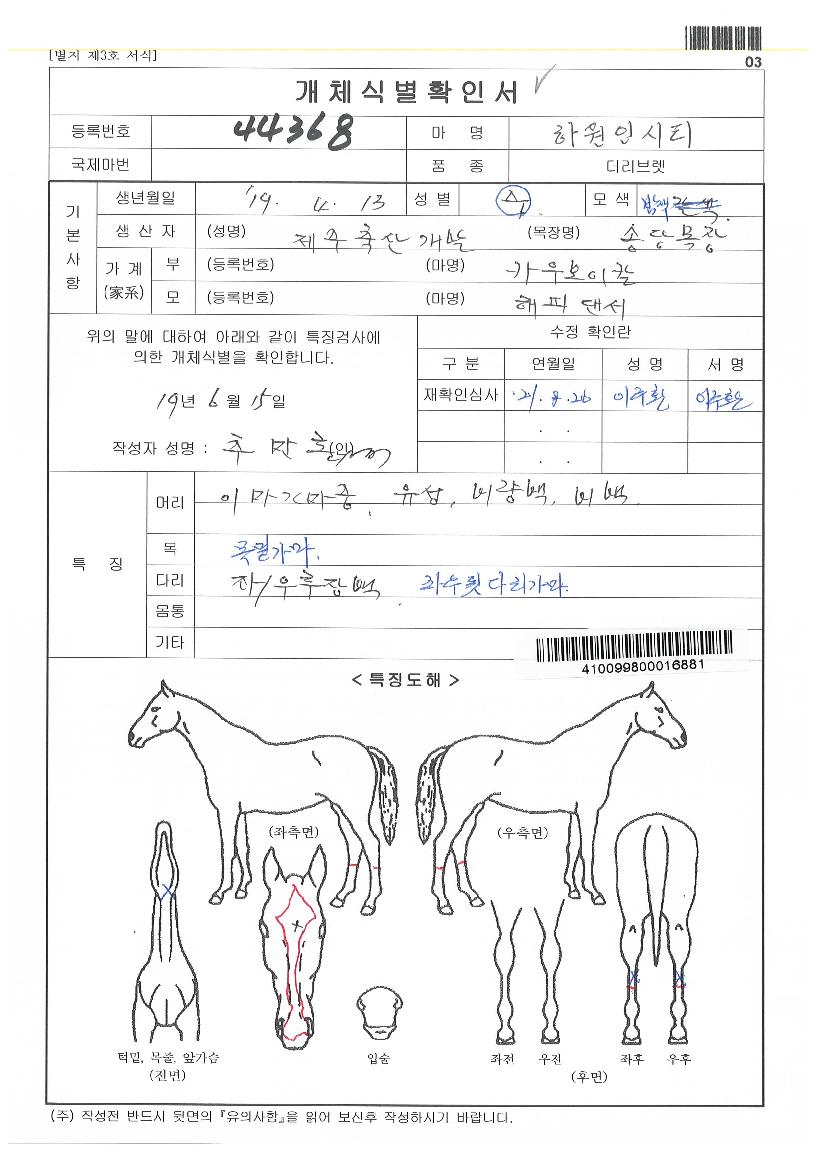 [별지 제3호 서식]
03
개체식별확인서
등록번호 44368 마 명 하원인시티
국제마번 품 종 더러브렛
기본사항
생년월일 '19. 4. 13 성 별 수 모 색
생 산 자 (성명) 제주축산개발 (목장명) 송당목장
가 계 (家系) 부 (등록번호) (마명)
모 (등록번호) (마명) 해피댄서
위의 말에 대하여 아래와 같이 특징검사에
의한 개체식별을 확인합니다.
19년 6월 15일
작성자 성명 : 추만호 (인)
수정 확인란
구 분 연월일 성 명 서 명
재확인심사 '21. 8. 26 이주환 이주환
. .
. .
특 징
머리 이마가마중, 유성, 비량백, 비백.
목 목덜가마.
다리 좌/우후장백
몸통
기타
410099800016881
< 특징도해 >
(좌측면) (우측면)
턱밑, 목줄, 앞가슴
(전면)
입술
좌전 우전 좌후 우후
(후면)
(주) 작성전 반드시 뒷면의 『유의사항』을 읽어 보신후 작성하시기 바랍니다.